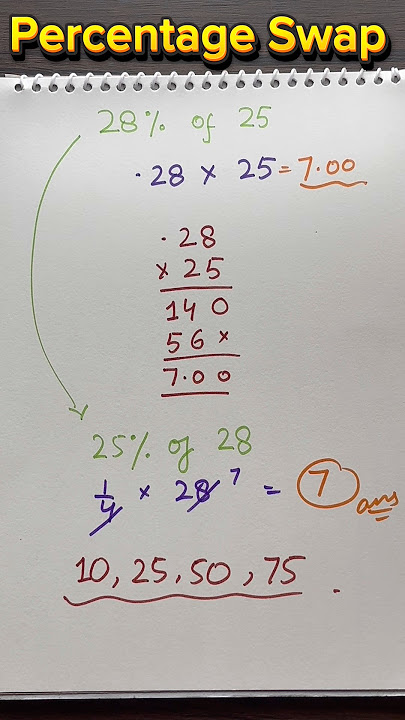 Percentage Swap
28% of 25
.28 × 25 = 7.00
.28
× 25
140
56×
7.00
25% of 28
1/4 × 28 7 = 7 ans
10, 25, 50, 75.